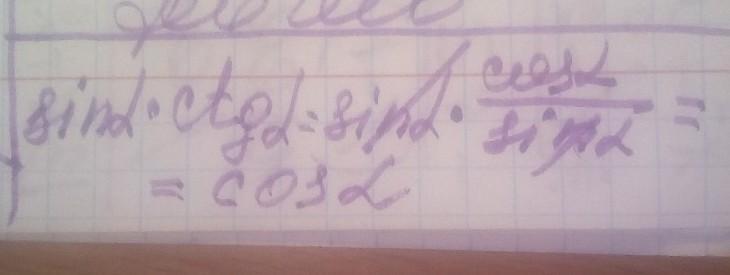 sinα · ctgα = sinα · cosα/sinα =
= cosα